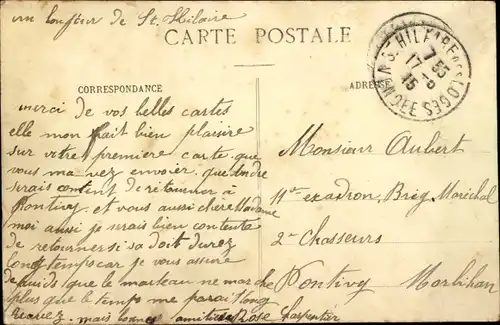 un bonjour de St. Hilaire
CARTE POSTALE
CORRESPONDANCE
ADRESSE
ST HILAIRE DES LOGES
7 55
17 -8
15
VENDEE
merci de vos belles cartes
elle mon fait bien plaisire
sur votre premiere carte que
vous ma vez envoier. que Andre
serais content de retourner à
Pontivy et vous aussi chère Madame
moi aussi je serais bien contente
de retourner si sa doit durez
longtemps car je vous assure
que le marteau ne marche
plus que le temps me parai long
mais bonnes amitiés Rose Charpentier
Monsieur Aubert
11e escadron, Brig. Maréchal
2e Chasseurs
Pontivy Morbihan